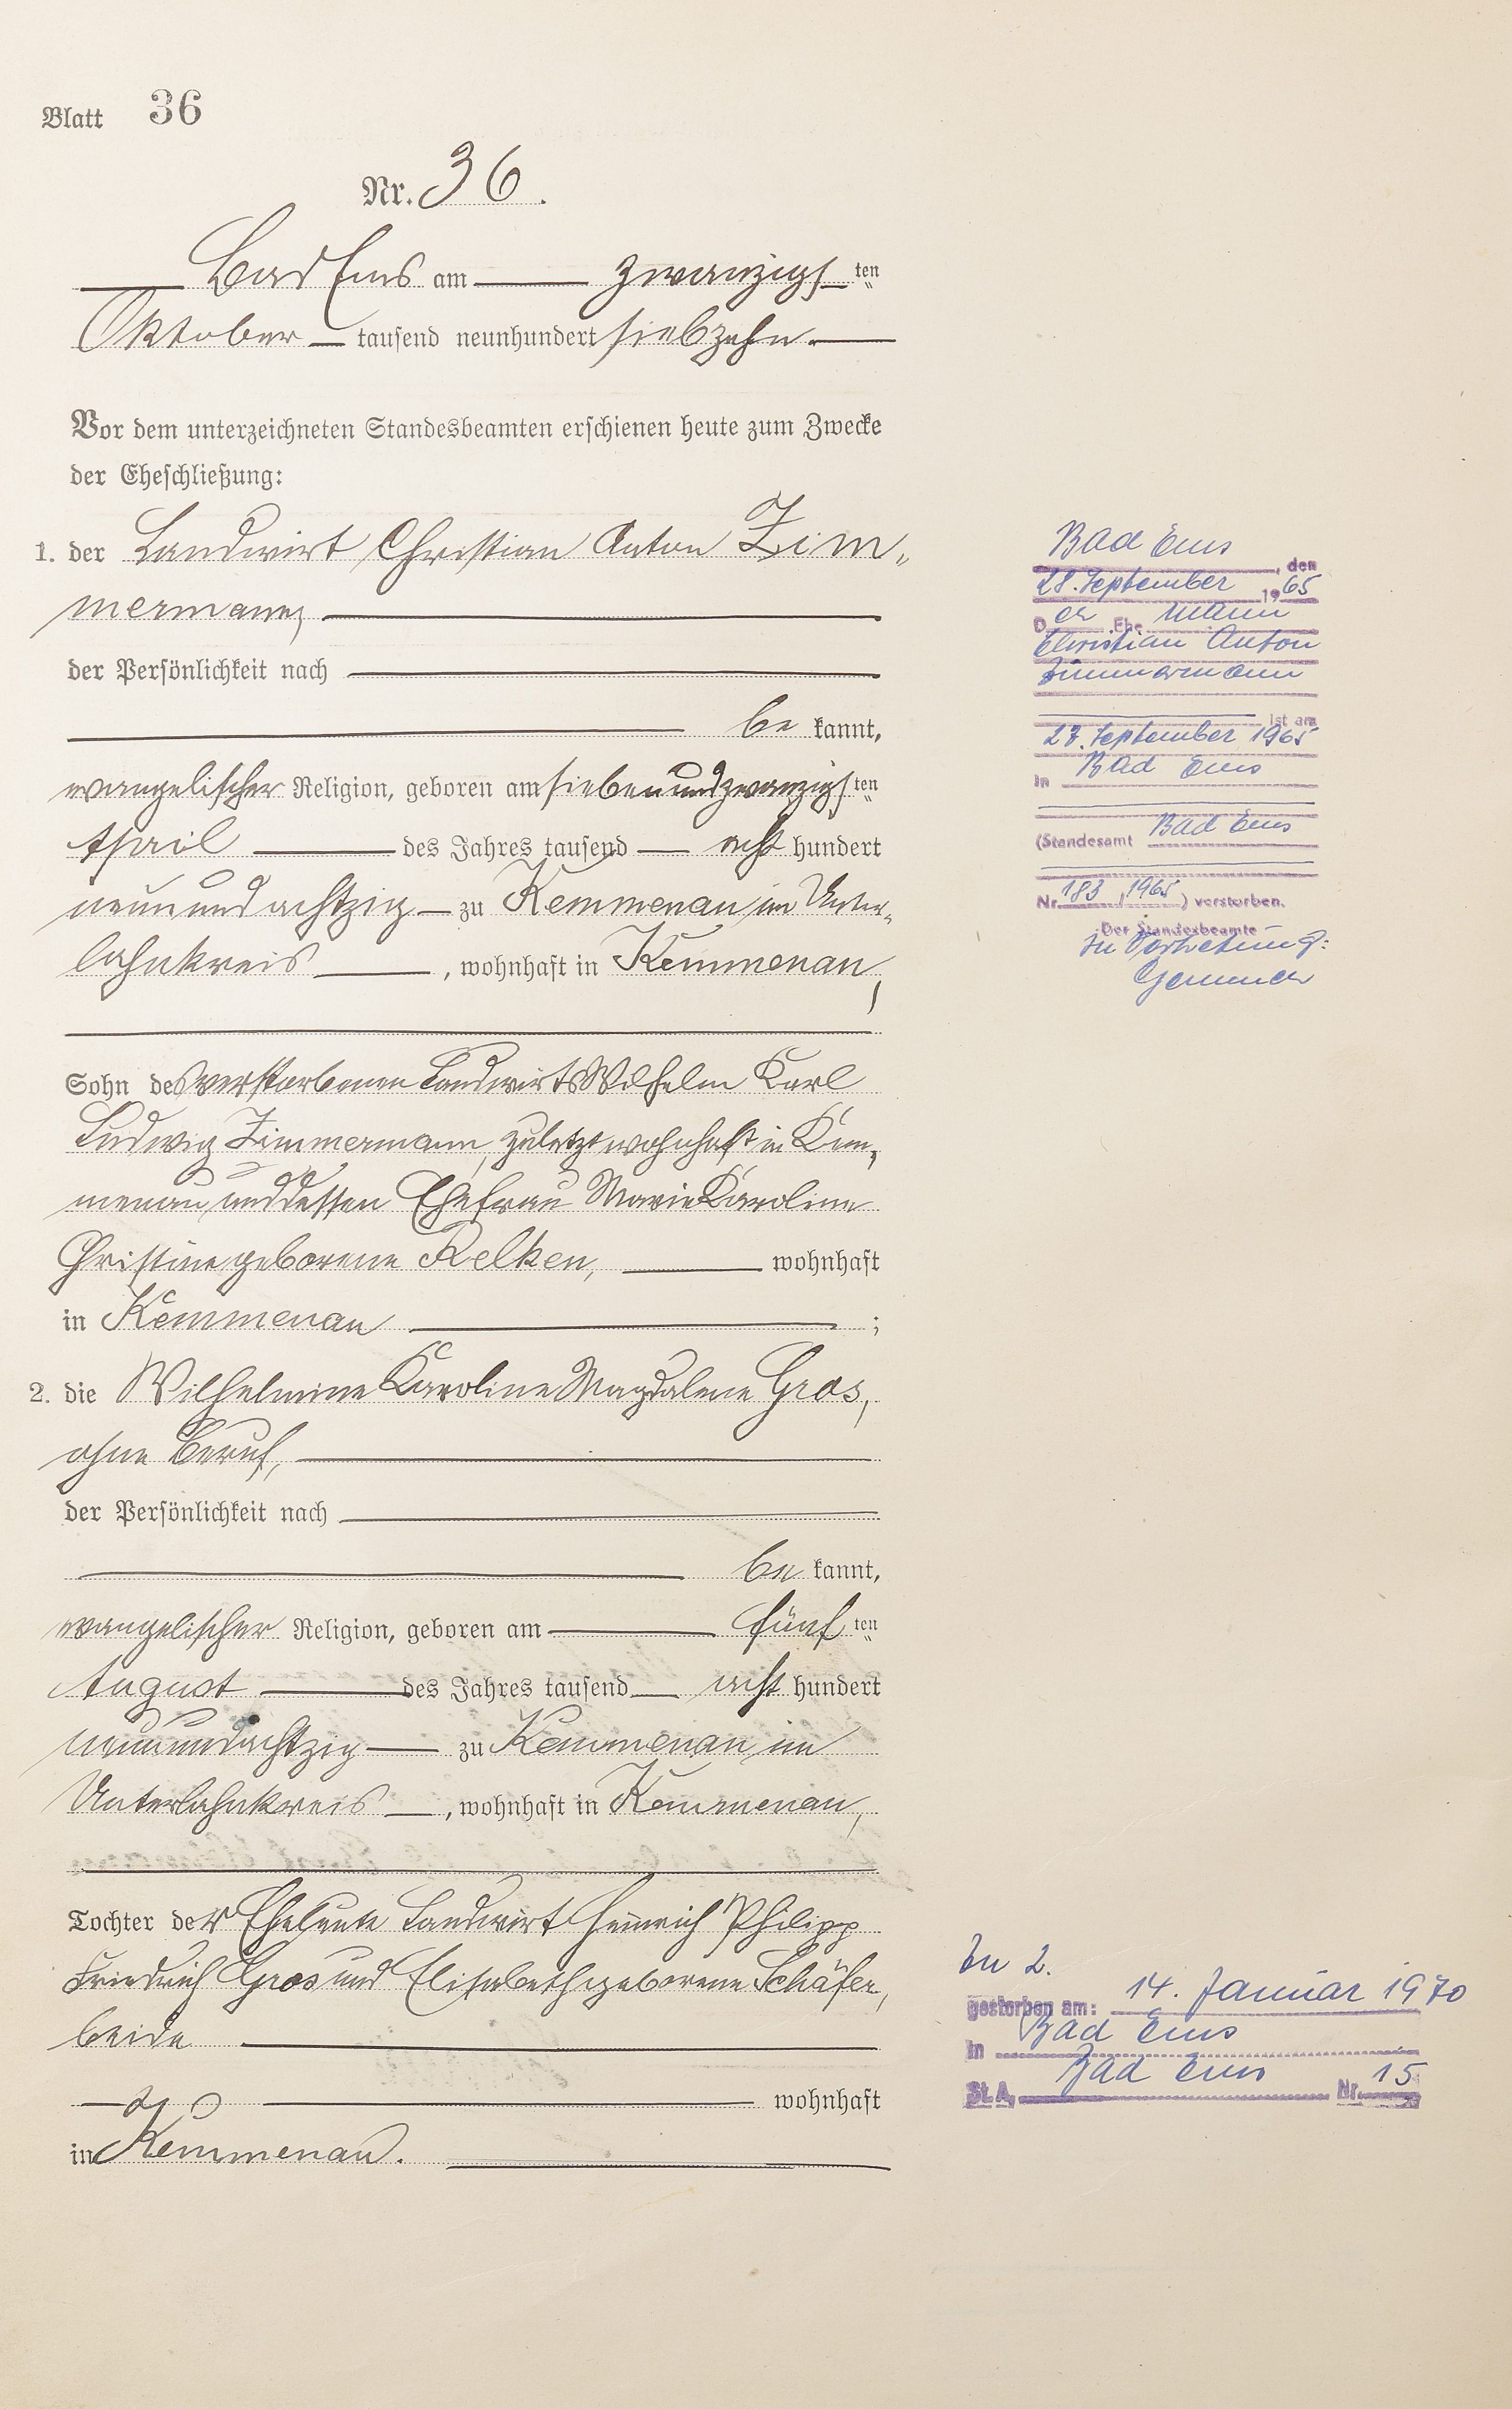 Blatt 36
Nr. 36.
Bad Ems am zwanzigsten
Oktober tausend neunhundert siebzehn.
Vor dem unterzeichneten Standesbeamten erschienen heute zum Zwecke
der Eheschließung:
1. der Landwirt Christian Anton Zim-
mermann,
der Persönlichkeit nach
be kannt,
evangelischer Religion, geboren am siebenundzwanzigsten
April des Jahres tausend acht hundert
neunundachtzig zu Kemmenau im Unter-
lahnkreis, wohnhaft in Kemmenau,
Sohn des verstorbenen Landwirts Wilhelm Karl
Ludwig Zimmermann, zuletzt wohnhaft in Kem-
menau und dessen Ehefrau Marie Karoline
Christine geborene Relken, wohnhaft
in Kemmenau ;
2. die Wilhelmine Karoline Magdalene Gros,
ohne Beruf,
der Persönlichkeit nach
be kannt,
evangelischer Religion, geboren am fünften
August des Jahres tausend acht hundert
neunundachtzig zu Kemmenau im
Unterlahnkreis, wohnhaft in Kemmenau,
Tochter der Eheleute Landwirt Heinrich Philipp
Friedrich Gros und Elisabeth geborene Schäfer,
beide
wohnhaft
in Kemmenau.
Bad Ems, den
28. September 1965
Der Ehe mann
Christian Anton
Zimmermann
ist am
27. September 1965
in Bad Ems
(Standesamt Bad Ems
Nr. 183/1965) verstorben.
Der Standesbeamte
In Vertretung:
Zu 2.
gestorben am: 14. Januar 1970
in Bad Ems
St.A. Bad Ems Nr. 15